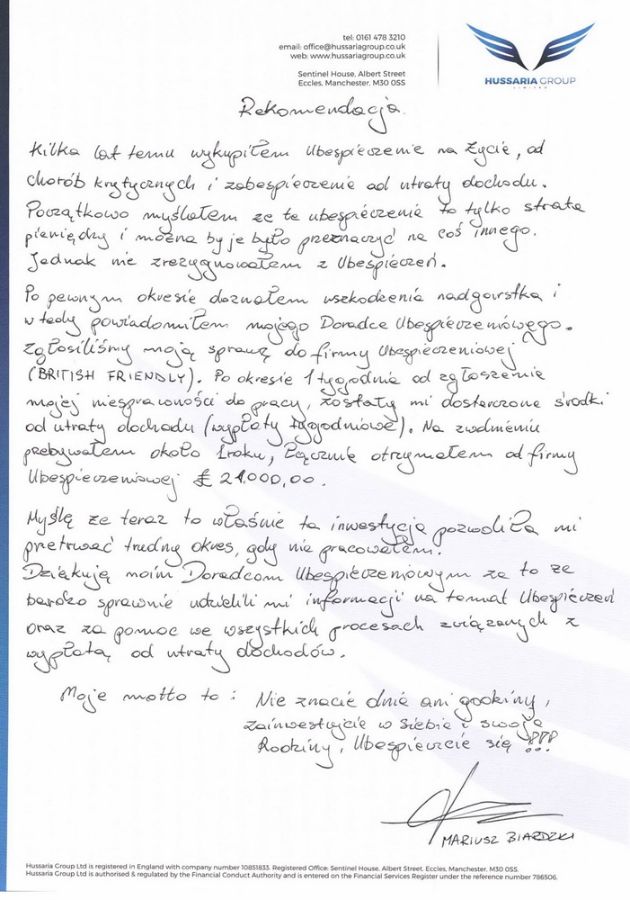 tel: 0161 478 3210
email: office@hussariagroup.co.uk
web: www.hussariagroup.co.uk
Sentinel House, Albert Street
Eccles, Manchester. M30 0SS
HUSSARIA GROUP
LIMITED
Rekomendacja.
Kilka lat temu wykupiłem Ubespieczenie na życie, od
chorób krytycznych i zabespieczenie od utraty dochodu.
Początkowo myślałem ze te ubespieczenia to tylko strata
pieniędzy i można by je było przeznaczyć na coś innego.
Jednak nie zrezygnowałem z Ubespieczeń.
Po pewnym okresie doznałem uszkodzenia nadgarstka i
wtedy powiadomiłem mojego Doradce Ubespieczeniowego.
Zgłosiliśmy moją sprawę do firmy Ubespieczeniowej
(BRITISH FRIENDLY). Po okresie 1 tygodnia od zgłoszenia
mojej niesprawności do pracy, zostały mi dostarczone środki
od utraty dochodu (wypłaty tygodniowe). Na zwolnieniu
przebywałem około 1roku, Łącznie otrzymałem od firmy
Ubespieczeniowej £ 21.000,00.
Myślę ze teraz to właśnie ta inwestycja pozwoliła mi
przetrwać trudny okres, gdy nie pracowałem.
Dziękuję moim Doradcom Ubespieczeniowym za to ze
bardzo sprawnie udzielili mi informacji na temat Ubespieczeń
oraz za pomoc we wszystkich procesach związanych z
wypłatą od utraty dochodów.
Moje motto to : Nie znacie dnia ani godziny,
zainwestujcie w siebie i swoje
Rodziny, Ubespieczcie się !!!
MARIUSZ BIARDZKI
Hussaria Group Ltd is registered in England with company number 10851833. Registered Office: Sentinel House, Albert Street, Eccles, Manchester. M30 0SS.
Hussaria Group Ltd is authorised & regulated by the Financial Conduct Authority and is entered on the Financial Services Register under the reference number 786506.